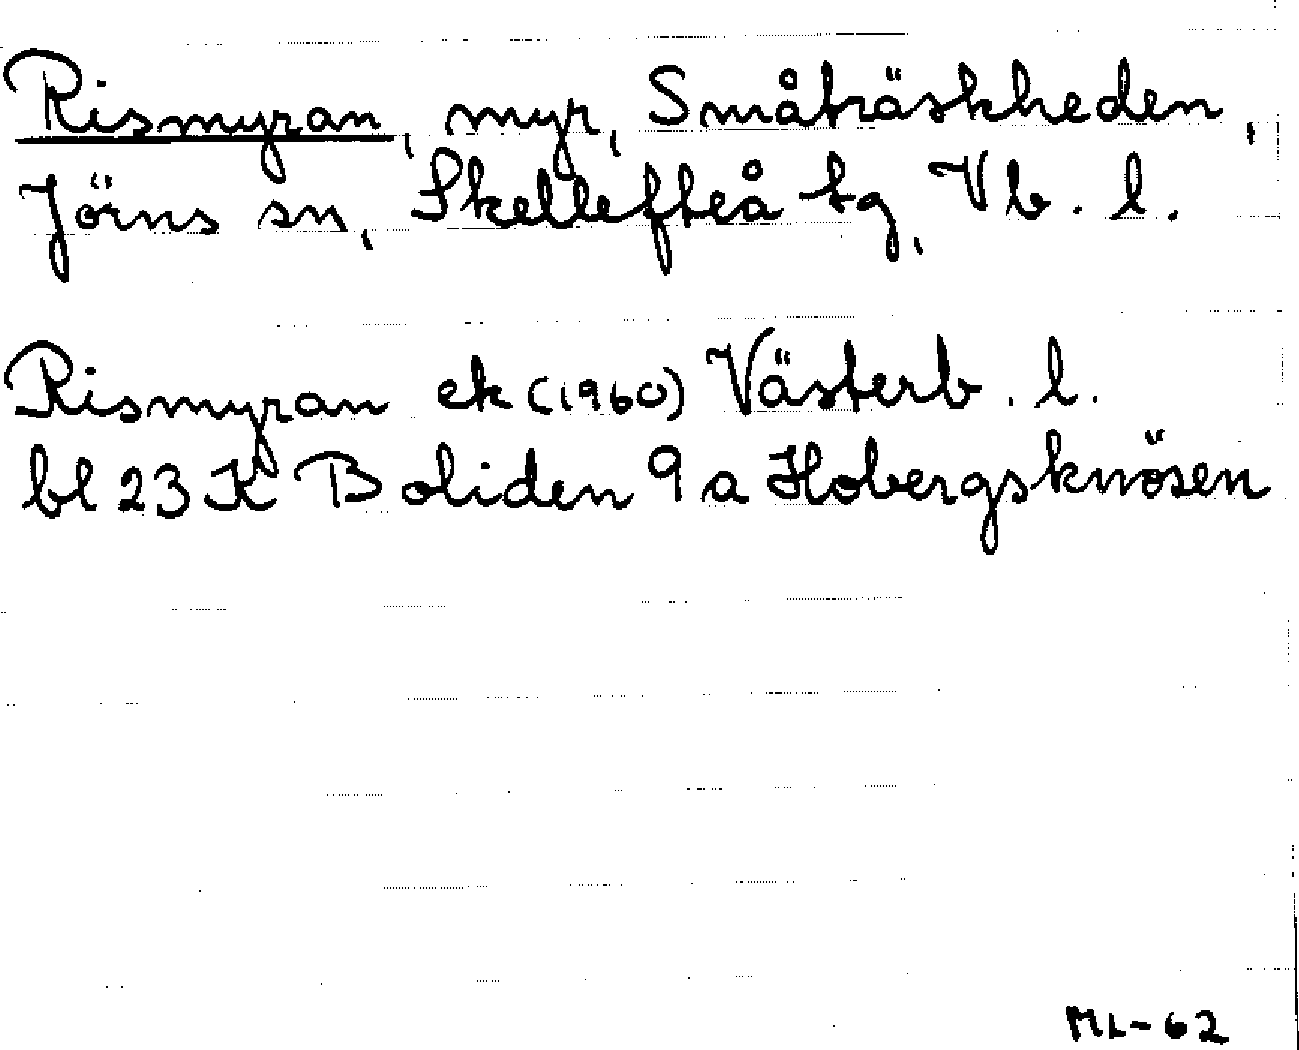 Rismyran, myr, Småträskheden,
Jörns sn, Skellefteå tg, Vb. l.
Rismyran ek (1960) Västerb. l.
bl 23 K Boliden 9 a Hobergsknösen
ML-62